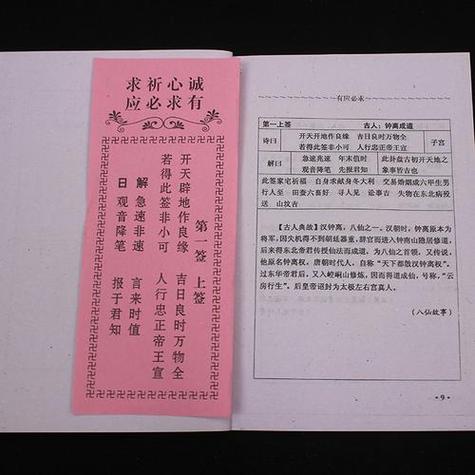 诚心祈求
有求必应
第一签 上签
开天辟地作良缘 吉日良时万物全
若得此签非小可 人行忠正帝王宣
解 急速非速 言来时值
日 观音降笔 报于君知
有应必求
第一上签 古人：钟离成道
诗曰 开天开地作良缘 吉日良时万物全 子宫
若得此签非小可 人行忠正帝王宣
解曰 急速兆速 年末值时 此卦盘古初开天地之
观音降笔 先报君知 象事皆吉也
此签家宅祈福 自身求献身冬大利 交易婚姻成六甲生男
行人至 田蚕六畜好 寻人见 讼事吉 失物在东北病授
送 山坟吉
【古人典故】汉钟离，八仙之一。汉朝时，钟离原本为
将军，因失机得不到朝廷器重，辞官而进入钟南山隐居修道，
后来得东北帝君传授仙法而成道。为八仙之首领，又传说，
他原名钟离权，唐朝时代人，自称“天下都散汉钟离权”。
过东华帝君后，又入崆峒山修炼，因而得道成仙，号称，“云
房行生”。后皇帝诏封为太极左右宫真人。
（八仙故事）
·9·